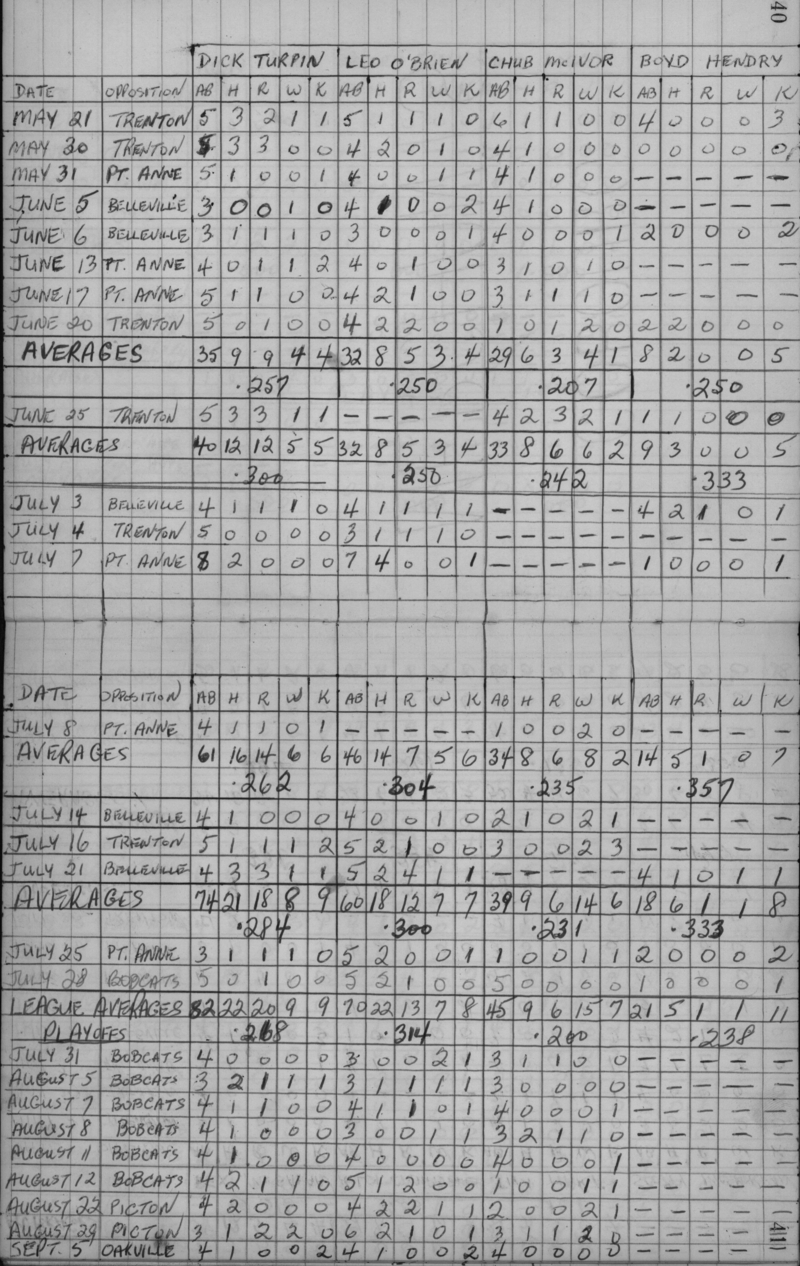 40
DICK TURPIN LEO O'BRIEN CHUB McIVOR BOYD HENDRY
DATE OPPOSITION AB H R W K AB H R W K AB H R W K AB H R W K
MAY 21 TRENTON 5 3 2 1 1 5 1 1 1 0 6 1 1 0 0 4 0 0 0 3
MAY 30 TRENTON 5 3 3 0 0 4 2 0 1 0 4 1 0 0 0 0 0 0 0 0
MAY 31 PT. ANNE 5 1 0 0 1 4 0 0 1 1 4 1 0 0 0 — — — — —
JUNE 5 BELLEVILLE 3 0 0 1 0 4 1 0 0 2 4 1 0 0 0 — — — — —
JUNE 6 BELLEVILLE 3 1 1 1 0 3 0 0 0 1 4 0 0 0 1 2 0 0 0 2
JUNE 13 PT. ANNE 4 0 1 1 2 4 0 1 0 0 3 1 0 1 0 — — — — —
JUNE 17 PT. ANNE 5 1 1 0 0 4 2 1 0 0 3 1 1 1 0 — — — — —
JUNE 20 TRENTON 5 0 1 0 0 4 2 2 0 0 1 0 1 2 0 2 2 0 0 0
AVERAGES 35 9 9 4 4 32 8 5 3 4 29 6 3 4 1 8 2 0 0 5
.257 .250 .207 .250
JUNE 25 TRENTON 5 3 3 1 1 — — — — — 4 2 3 2 1 1 1 0 0 0
AVERAGES 40 12 12 5 5 32 8 5 3 4 33 8 6 6 2 9 3 0 0 5
.300 .250 .242 .333
JULY 3 BELLEVILLE 4 1 1 1 0 4 1 1 1 1 — — — — — 4 2 1 0 1
JULY 4 TRENTON 5 0 0 0 0 3 1 1 1 0 — — — — — — — — — —
JULY 7 PT. ANNE 8 2 0 0 0 7 4 0 0 1 — — — — — 1 0 0 0 1
DATE OPPOSITION AB H R W K AB H R W K AB H R W K AB H R W K
JULY 8 PT. ANNE 4 1 1 0 1 — — — — — 1 0 0 2 0 — — — — —
AVERAGES 61 16 14 6 6 46 14 7 5 6 34 8 6 8 2 14 5 1 0 7
.262 .304 .235 .357
JULY 14 BELLEVILLE 4 1 0 0 0 4 0 0 1 0 2 1 0 2 1 — — — — —
JULY 16 TRENTON 5 1 1 1 2 5 2 1 0 0 3 0 0 2 3 — — — — —
JULY 21 BELLEVILLE 4 3 3 1 1 5 2 4 1 1 — — — — — 4 1 0 1 1
AVERAGES 74 21 18 8 9 60 18 12 7 7 39 9 6 14 6 18 6 1 1 8
.284 .300 .231 .333
JULY 25 PT. ANNE 3 1 1 1 0 5 2 0 0 1 1 0 0 1 1 2 0 0 0 2
JULY 28 BOBCATS 5 0 1 0 0 5 2 1 0 0 5 0 0 0 0 1 0 0 0 1
LEAGUE AVERAGES 82 22 20 9 9 70 22 13 7 8 45 9 6 15 7 21 5 1 1 11
PLAYOFFS .268 .314 .200 .238
JULY 31 BOBCATS 4 0 0 0 0 3 0 0 2 1 3 1 1 0 0 — — — — —
AUGUST 5 BOBCATS 3 2 1 1 1 3 1 1 1 1 3 0 0 0 0 — — — — —
AUGUST 7 BOBCATS 4 1 1 0 0 4 1 1 0 1 4 0 0 0 1 — — — — —
AUGUST 8 BOBCATS 4 1 0 0 0 3 0 0 1 1 3 2 1 1 0 — — — — —
AUGUST 11 BOBCATS 4 1 0 0 0 4 0 0 0 0 4 0 0 0 1 — — — — —
AUGUST 12 BOBCATS 4 2 1 1 0 5 1 2 0 0 1 0 0 1 1 — — — — —
AUGUST 22 PICTON 4 2 0 0 0 4 2 2 1 1 2 0 0 2 1 — — — — —
AUGUST 29 PICTON 3 1 2 2 0 6 2 1 0 1 3 1 1 2 0 — — — — —
SEPT. 5 OAKVILLE 4 1 0 0 2 4 1 0 0 2 4 0 0 0 0 — — — — —
41